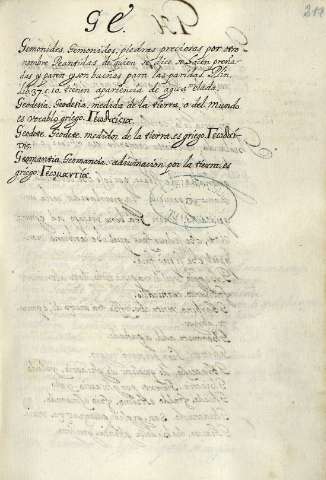 Ge.
Gemonides. Gemonides, piedras preciosas por otro
nombre Peantidas, de quien se dice se hacen preña
das y paren y son buenas para las paridas. Plin.
lib. 37. c. 10. tienen apariencia de agua elada.
Geodesia, Geodesia, medida de la tierra, o del mundo
es vocablo griego. Γεωδεσία.
Geodete. Geodete. medidor de la tierra. es griego. Γεοδετ
της.
Geomantia, Geomancia. adivinacion por la tierra. es
griego. Γεομαντία.